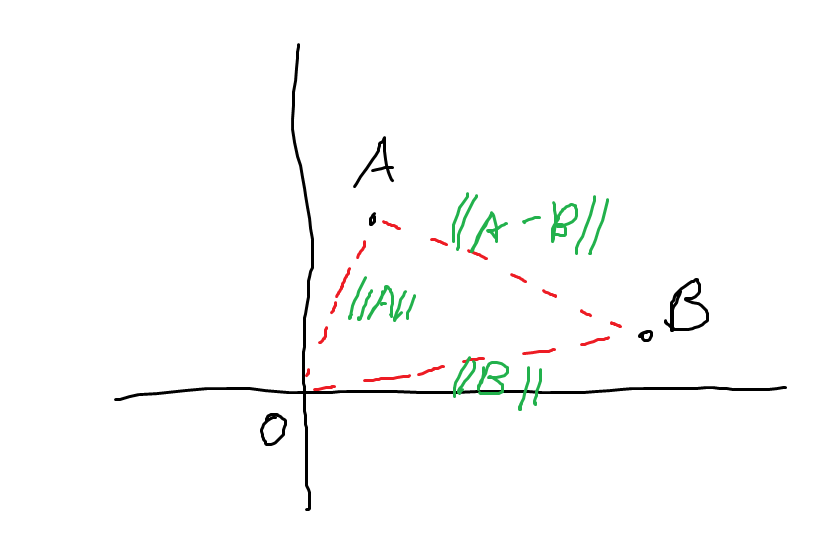 A
||A-B||
||A||
B
||B||
O